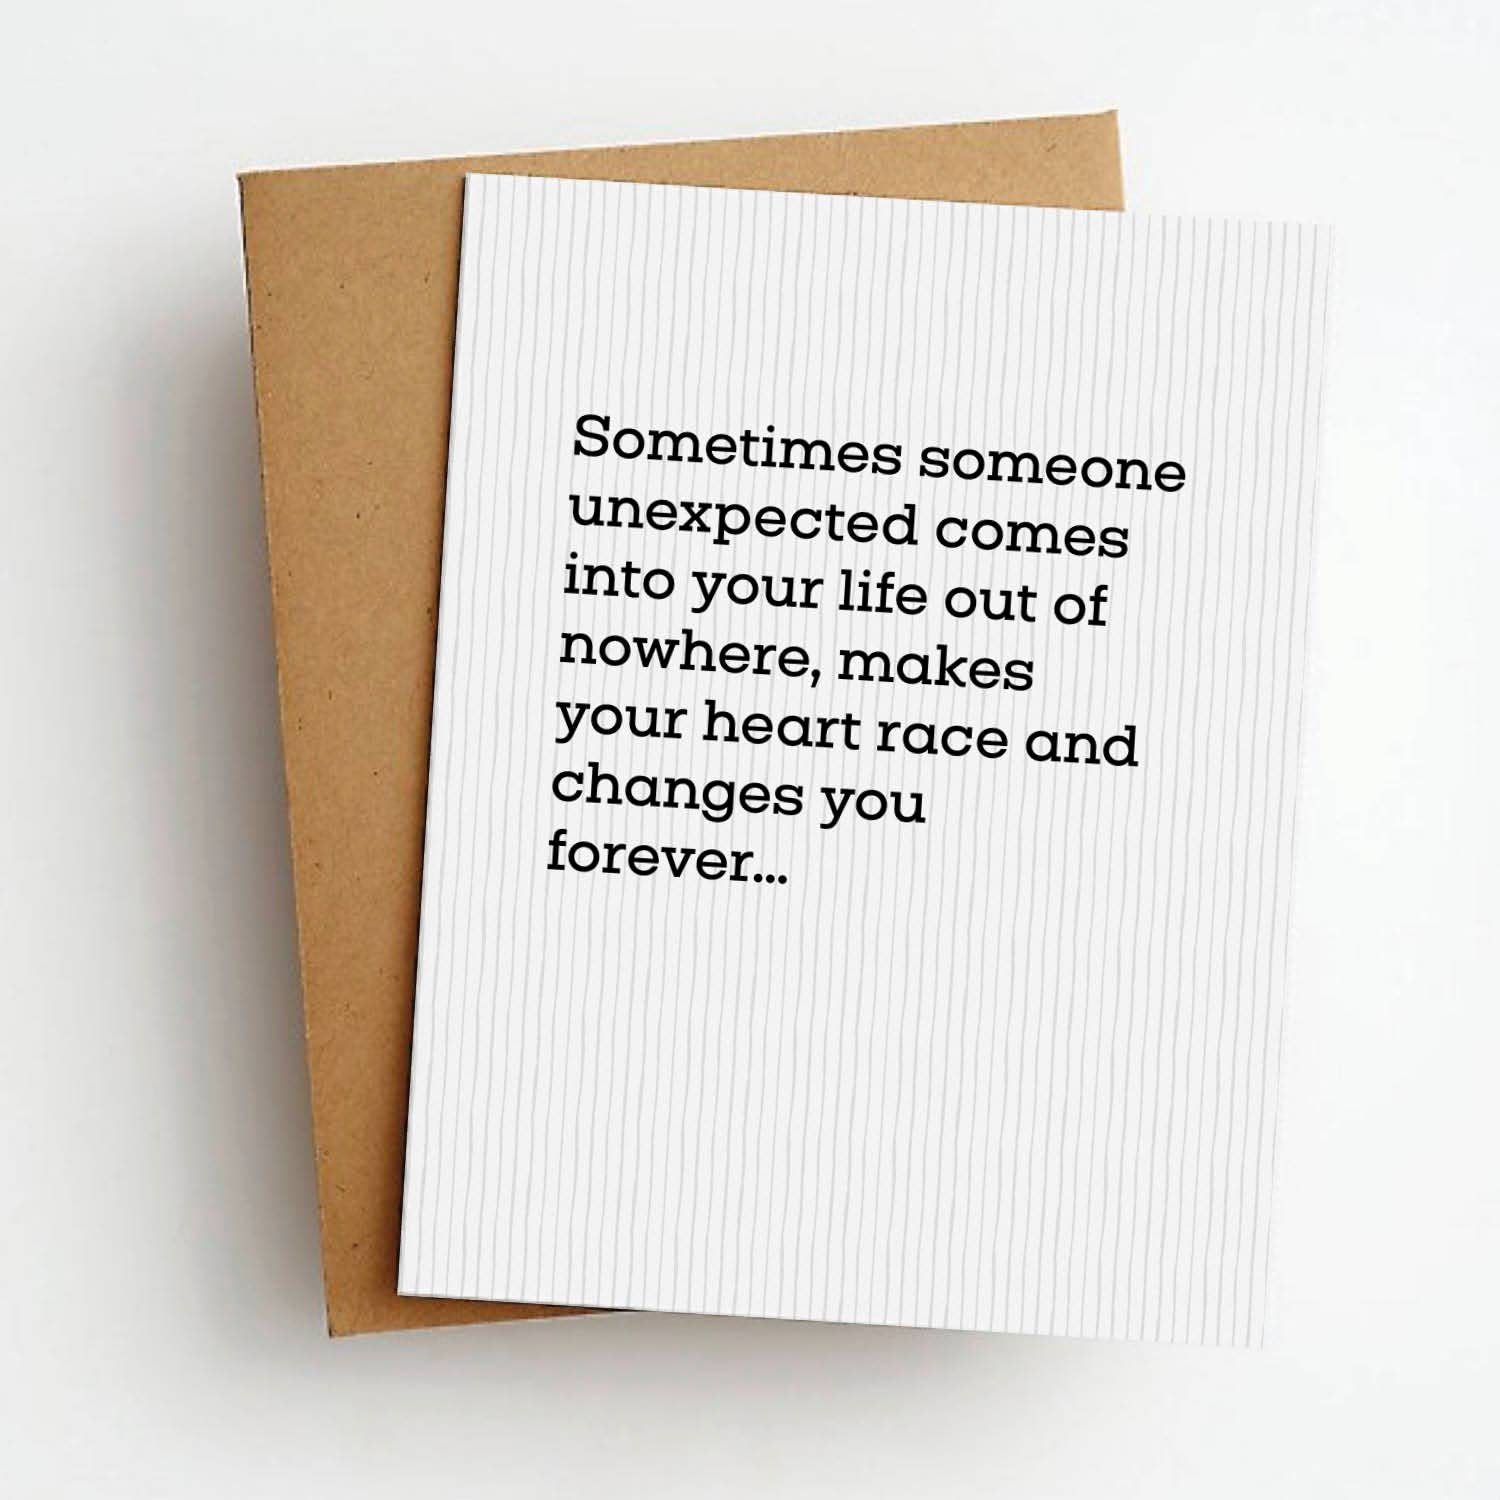 Sometimes someone
unexpected comes
into your life out of
nowhere, makes
your heart race and
changes you
forever...